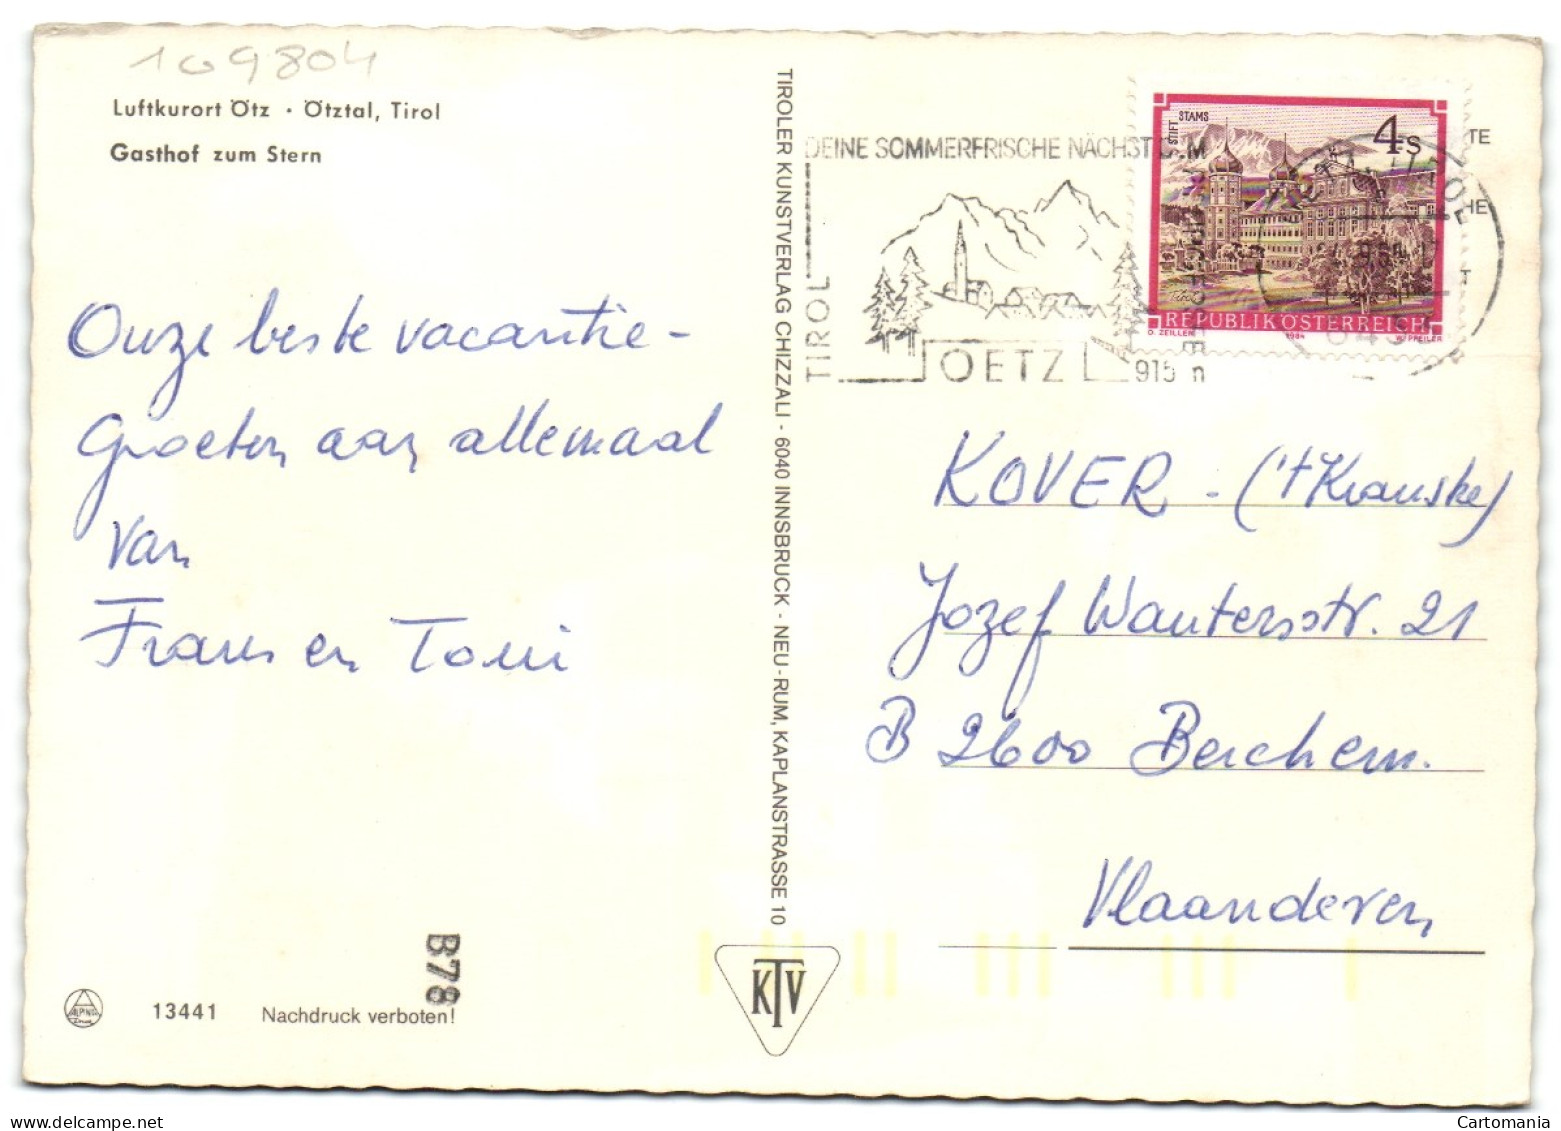 109804
Luftkurort Ötz · Ötztal, Tirol
Gasthof zum Stern
Onze beste vacantie-
Groeten aan allemaal
Van
Frans en Toni
B78
ALPINA
13441
Nachdruck verboten!
TIROLER KUNSTVERLAG CHIZZALI - 6040 INNSBRUCK - NEU-RUM, KAPLANSTRASSE 10
KTV
DEINE SOMMERFRISCHE NÄCHST DEM
TIROL
OETZ
915 m
STIFT STAMS
4s
REPUBLIK ÖSTERREICH
O. ZEILLER
1984
W. PFEILER
TE
HE
KOVER - ('t Kranske)
Jozef Wautersstr. 21
B 2600 Berchem.
Vlaanderen
Cartomania